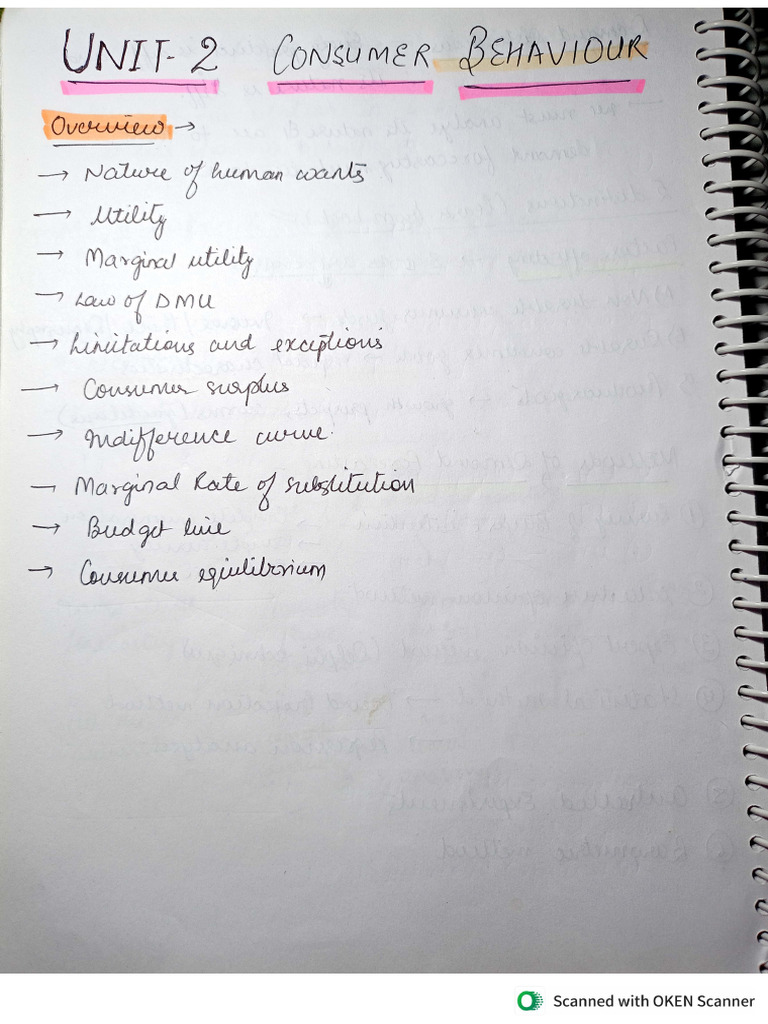 UNIT-2 CONSUMER BEHAVIOUR
Overview →
→ Nature of human wants
→ Utility
→ Marginal utility
→ Law of DMU
→ Limitations and exceptions
→ Consumer surplus
→ Indifference curve.
→ Marginal Rate of substitution
→ Budget line
→ Consumer equilibrium
Scanned with OKEN Scanner